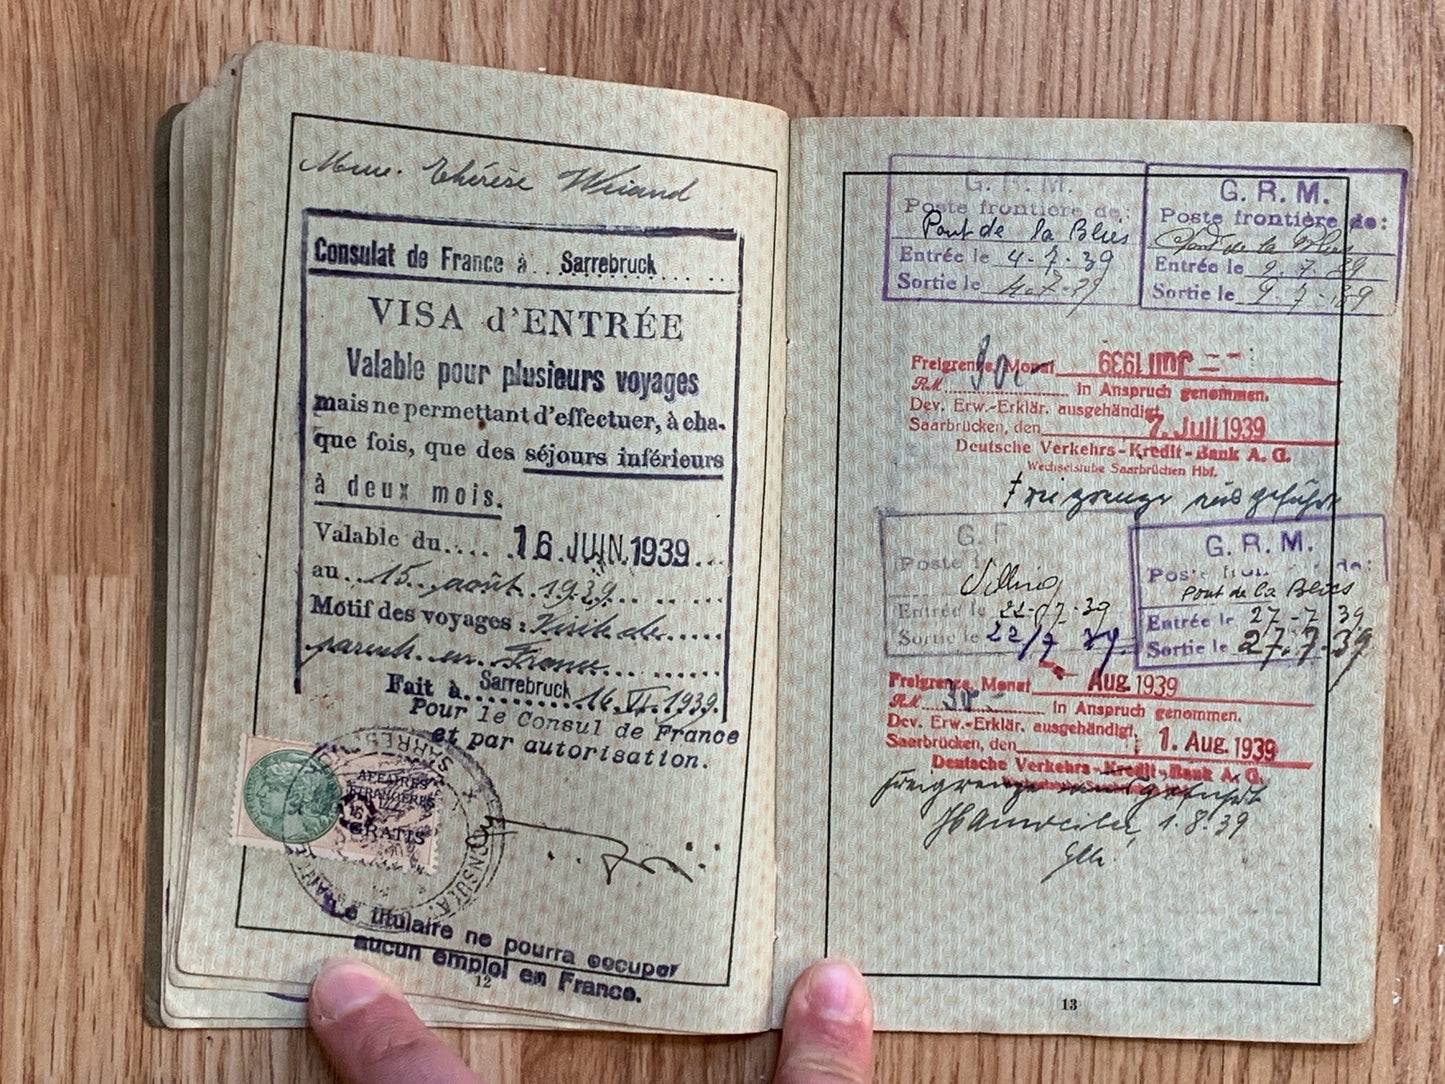 Mme. Thérèse Wiiand
Consulat de France à.. Sarrebruck
VISA d'ENTRÉE
Valable pour plusieurs voyages
mais ne permettant d'effectuer, à cha-
que fois, que des séjours inférieurs
à deux mois.
Valable du.... 16 JUIN 1939...
au..15..août..1939......
Motif des voyages : Visite de.....
parents..en..France........
Fait à..Sarrebruck 16.VI.1939.
Pour le Consul de France
et par autorisation.
AFFAIRES
ETRANGÈRES
GRATIS
CONSULA
SARRE
Le titulaire ne pourra occuper
aucun emploi en France.
12
G. R. M.
Poste frontière de:
Pont de la Blies
Entrée le 4-7-39
Sortie le 4.7-39
G. R. M.
Poste frontière de:
Pont de la Blies
Entrée le 9.7.39
Sortie le 9.7-39
Freigrenze, Monat Juni 1939
RM in Anspruch genommen.
Dev. Erw.-Erklär. ausgehändigt
Saarbrücken, den 7. Juli 1939
Deutsche Verkehrs-Kredit-Bank A. G.
Wechselstube Saarbrücken Hbf.
Freigrenze ausgeführt
G. R
Poste f
Entrée le 22-07-39
Sortie le 22/7 39
G. R. M.
Poste de:
Pont de la Blies
Entrée le 27-7 39
Sortie le 27.7-39
Freigrenze, Monat Aug. 1939
RM 30 - in Anspruch genommen.
Dev. Erw.-Erklär. ausgehändigt
Saarbrücken, den 1. Aug. 1939
Deutsche Verkehrs-Kredit-Bank A. G.
Freigrenze ausgeführt
Hanweiler, 1.8.39
13